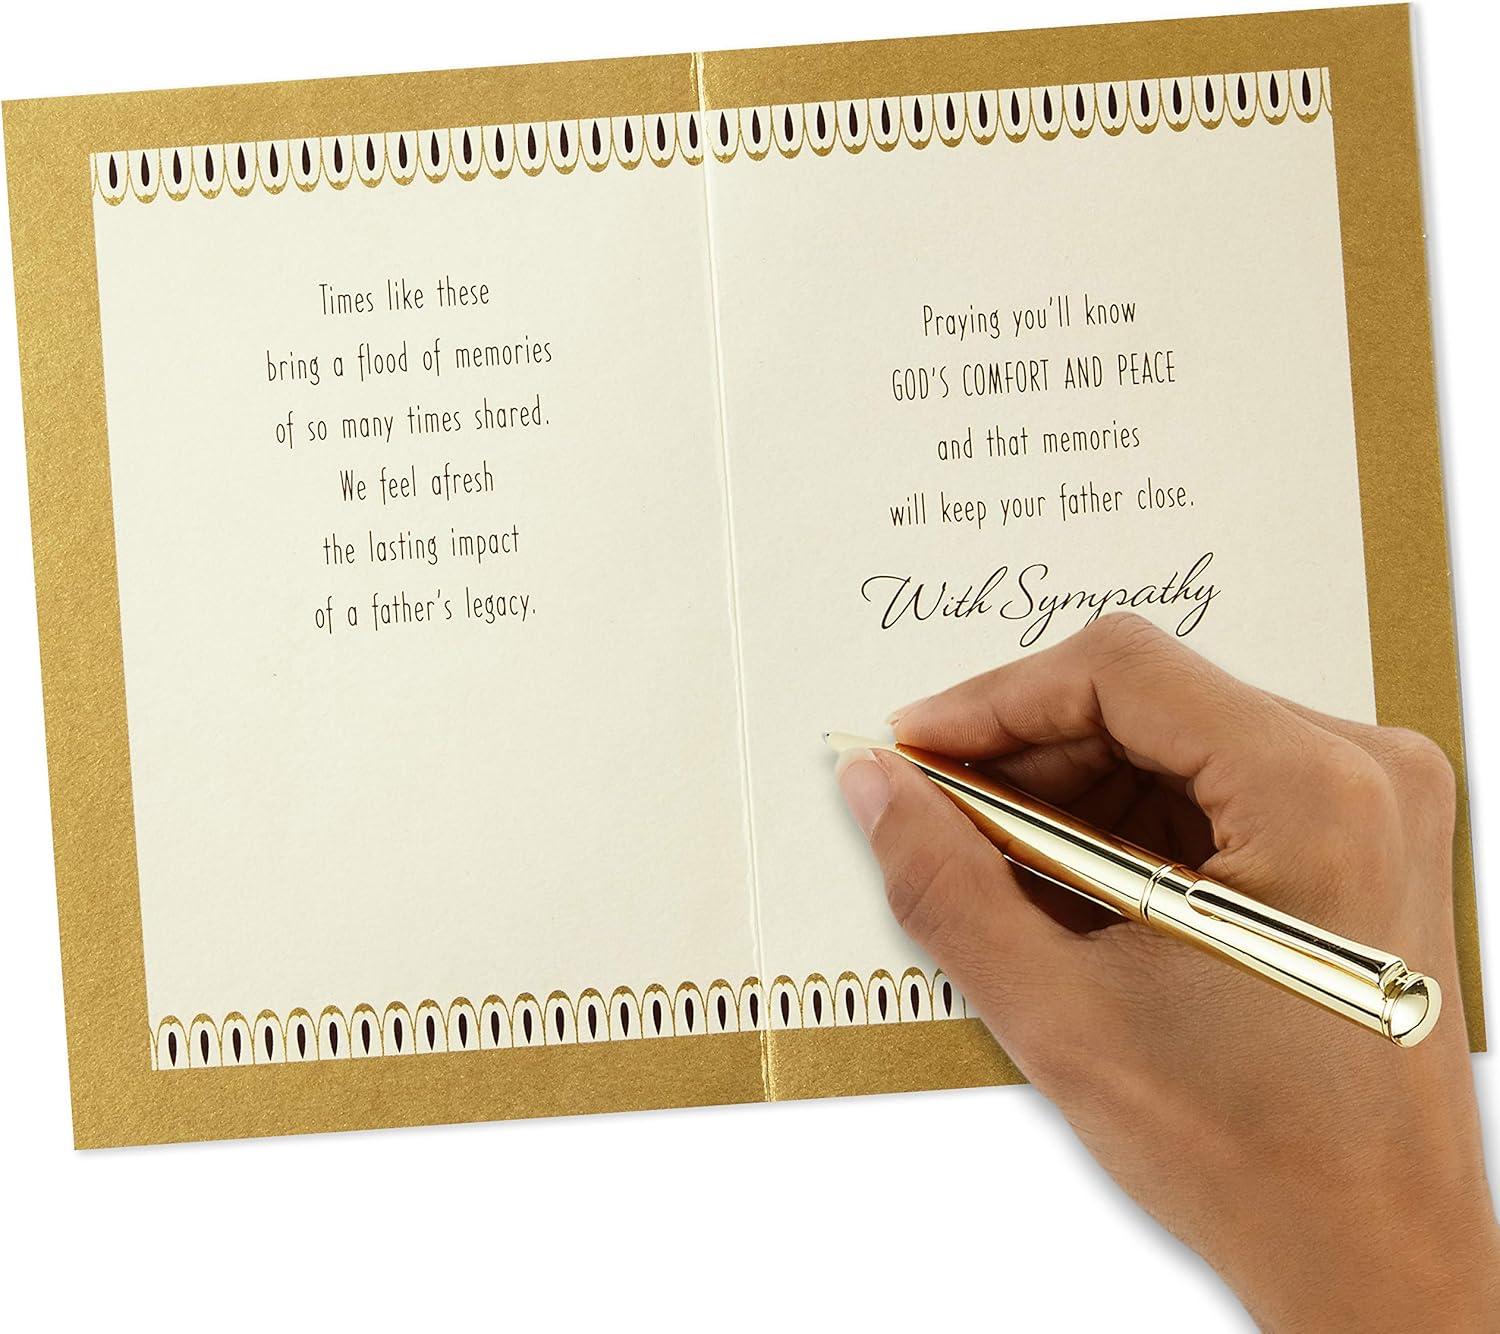 Times like these
bring a flood of memories
of so many times shared.
We feel afresh
the lasting impact
of a father's legacy.
Praying you'll know
GOD'S COMFORT AND PEACE
and that memories
will keep your father close.
With Sympathy